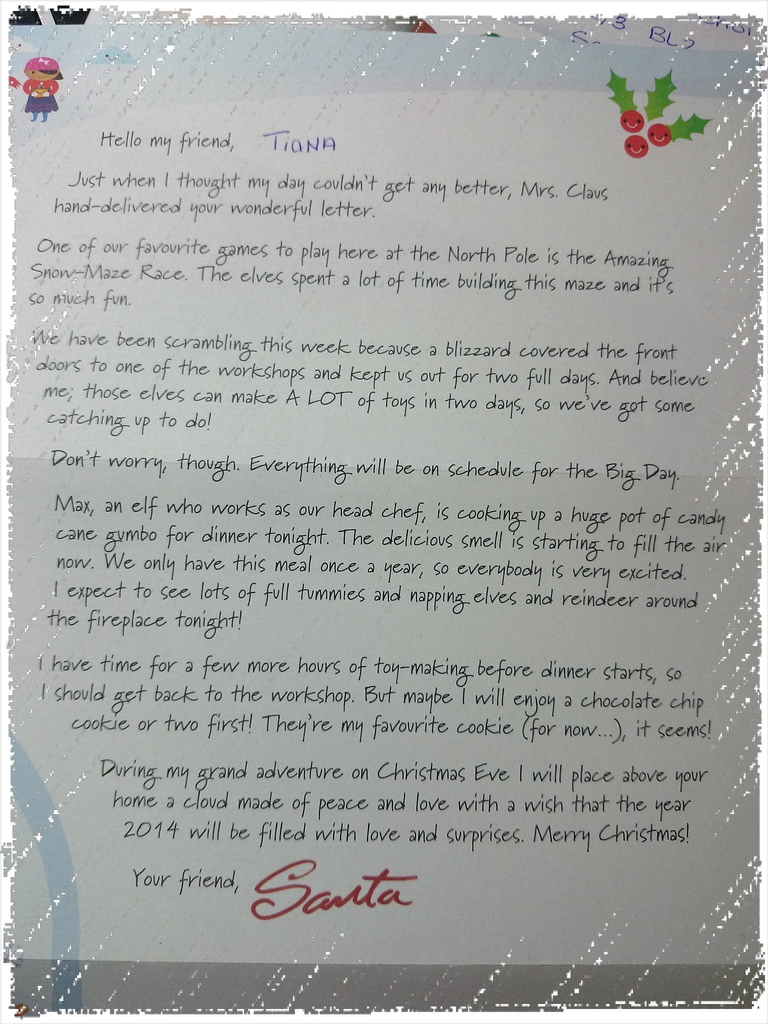 BL
Hello my friend, TIANA
Just when I thought my day couldn't get any better, Mrs. Claus
hand-delivered your wonderful letter.
One of our favourite games to play here at the North Pole is the Amazing
Snow-Maze Race. The elves spent a lot of time building this maze and it's
so much fun.
We have been scrambling this week because a blizzard covered the front
doors to one of the workshops and kept us out for two full days. And believe
me; those elves can make A LOT of toys in two days, so we've got some
catching up to do!
Don't worry, though. Everything will be on schedule for the Big Day.
Max, an elf who works as our head chef, is cooking up a huge pot of candy
cane gumbo for dinner tonight. The delicious smell is starting to fill the air
now. We only have this meal once a year, so everybody is very excited.
I expect to see lots of full tummies and napping elves and reindeer around
the fireplace tonight!
I have time for a few more hours of toy-making before dinner starts, so
I should get back to the workshop. But maybe I will enjoy a chocolate chip
cookie or two first! They're my favourite cookie (for now...), it seems!
During my grand adventure on Christmas Eve I will place above your
home a cloud made of peace and love with a wish that the year
2014 will be filled with love and surprises. Merry Christmas!
Your friend, Santa